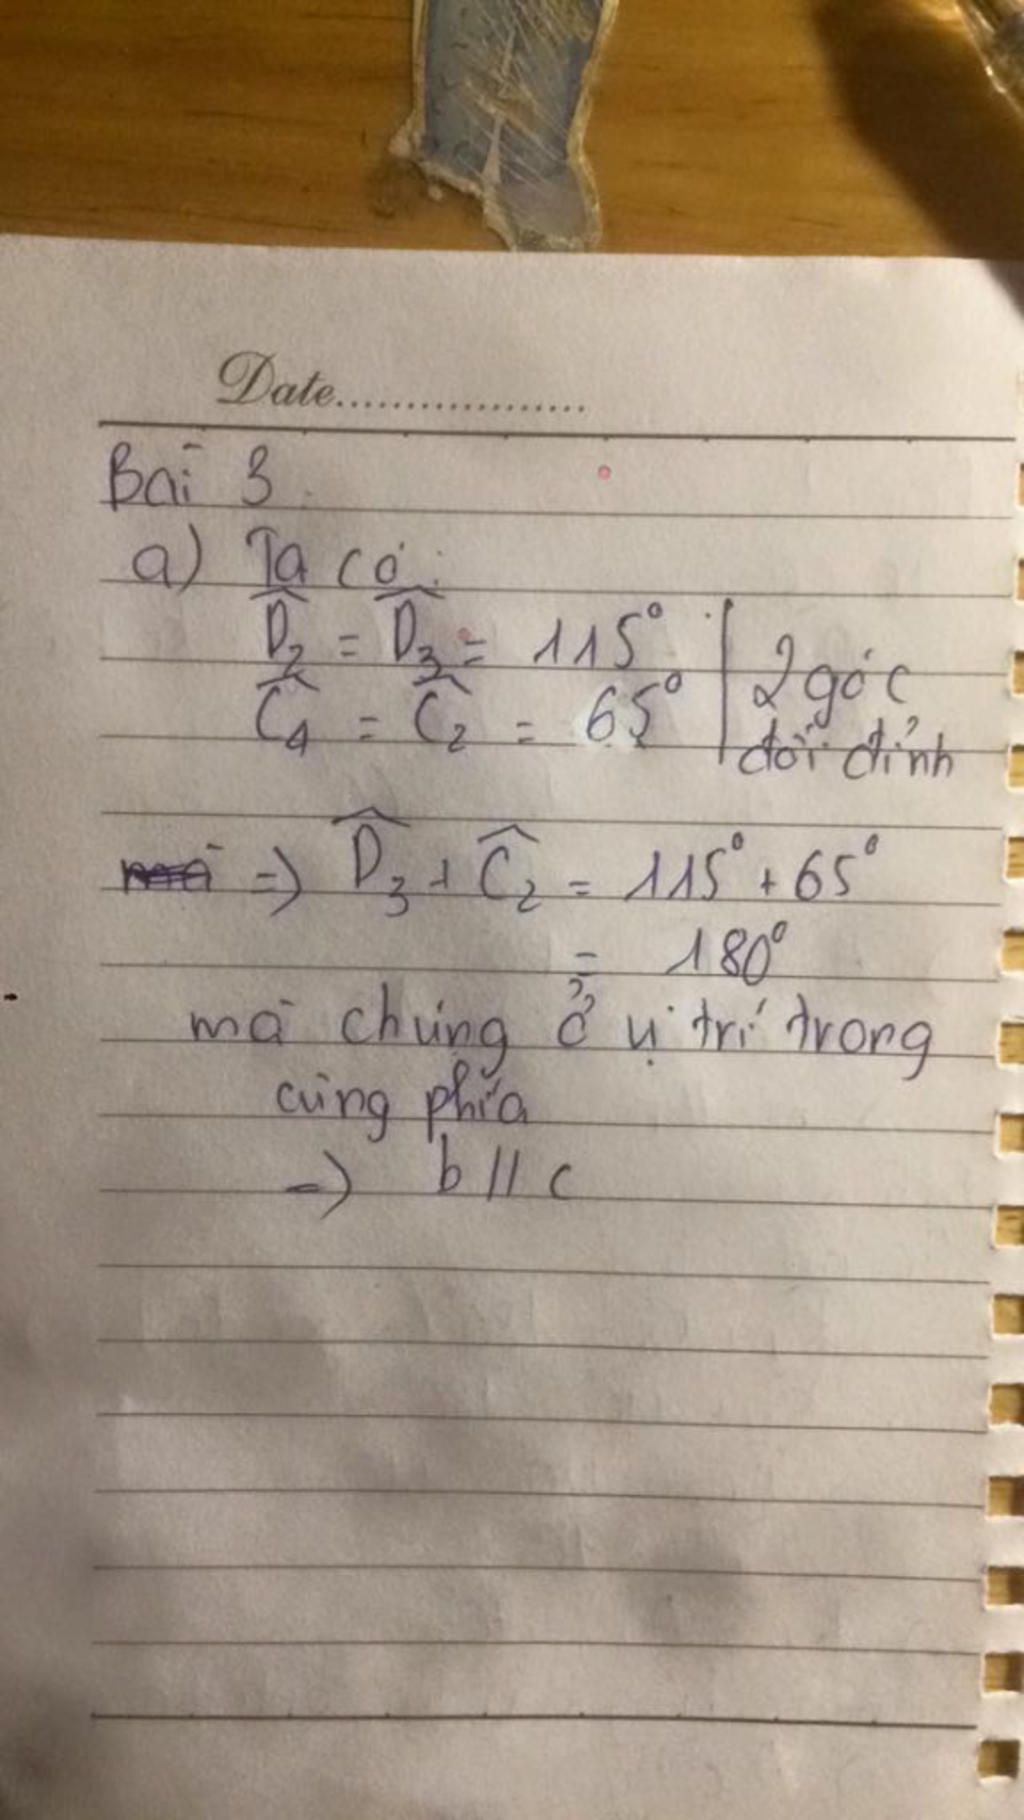 Date..................
Bài 3.
a) Ta có:
D̂₂ = D̂₃ = 115° | 2 góc
Ĉ₄ = Ĉ₂ = 65° | đối đỉnh
=> D̂₃ + Ĉ₂ = 115° + 65°
= 180°
mà chúng ở vị trí trong
cùng phía
=> b // c